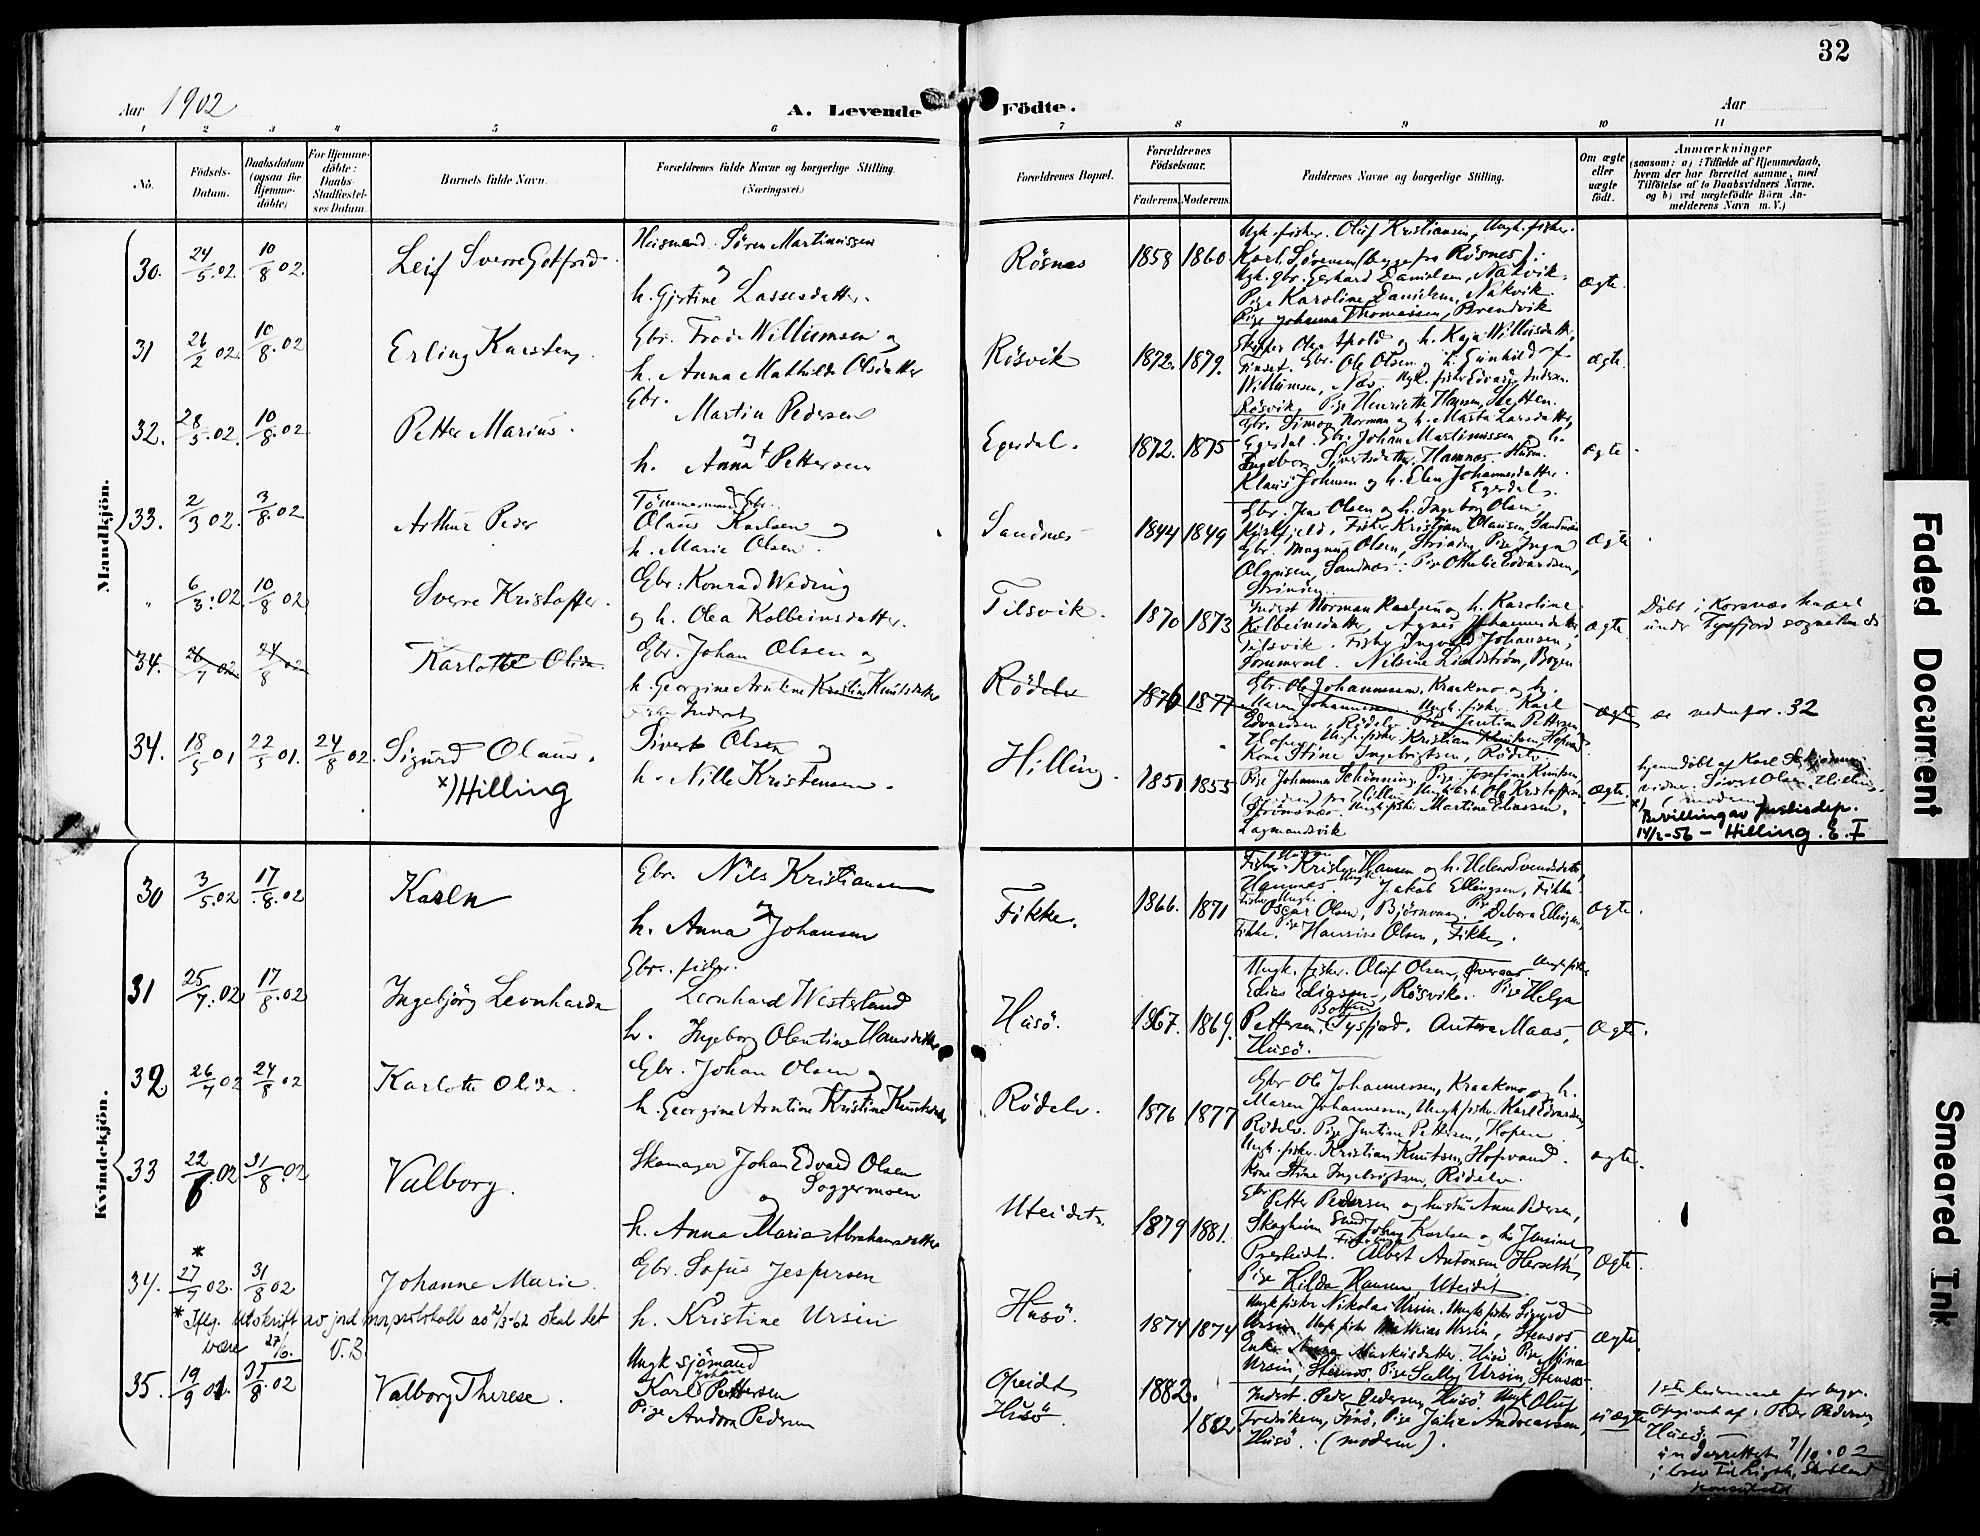 32
Aar 1902
A. Levende Födte.
Aar
1 2 3 4 5 6 7 8 9 10 11
No.
Födsels-
Datum.
Daabsdatum
(ogsaa for
Hjemme-
döbte)
For Hjemme-
döbte:
Daabs-
Stadfæstel-
ses Datum
Barnets fulde Navn.
Forældrenes fulde Navne og borgerlige Stilling
(Næringsvei.)
Forældrenes Bopæl.
Forældrenes
Födselsaar.
Faderens. Moderens.
Faddernes Navne og borgerlige Stilling.
Om ægte
eller
uægte
født.
Anmærkninger
(saasom: a) : Tilfælde af Hjemmedaab,
hvem der har forrettet samme, med
Tilföielse af to Daabsvidners Navne,
og b) ved uægtefödte Börn An-
melderens Navn m. V.)
Mandkjön.
30. 24/5.02. 10/8 02. Leif Sverre Gotfrid.
Søren Martinussen
og
h. Gjertine Lassesdatter.
Rösnes 1858 1860
Ungk. fisker. Oluf Kristiansen, Ungk. fisker.
Karl Sörensen (begge fra Rösnes).
Ungk. gbr. Gerhard Danielsen, Nakvik.
Pige Karoline Danielsen, Nakvik.
Pige Johanna Thomassen, Brendvik
Ægte.
31 26/2 02. 10/8.02 Erling Karsten.
Gbr. Willumsen og
h. Anna Mathilde Olsdatter
Rösvik 1872. 1879.
Willumsen, Næs.
Rösvik. Pige Henriette Hansen,
ægte.
32. 28/5.02. 10/8.02 Petter Marius.
Gbr. Martin Pedersen
og
h. Anna Pettersen
Egerdal. 1872. 1875
Gbr. Simon Norman og h. Marta Larsdatter,
Egerdal. Gbr. Johan Martinussen og h.
Ingeborg Sivertsdatter, Hamnes.
Klaus Johnsen og h. Elen Johannesdatter
Egerdal.
ægte.
33. 2/3 02. 3/8.02 Arthur Peder
Tömmermand Gbr.
Olaus Karlsen og
h. Marie Olsen.
Sandnes 1844 1849
Gbr. Jens Olsen og h. Ingeborg Olsen,
Fisker Kristian Olausen, Sandnes
Gbr. Magnus Olsen, Pige Inga
Olausen, Sandnes. Pige Othelie Edvardsen,
Ægte.
" 6/3.02 10/8 02 Sverre Kristoffer.
Gbr. Konrad Weding
og h. Olea Kolbeinsdatter.
Tilsvik. 1870 1873
Inderst Norman Karlsen og h. Karoline
Kolbeinsdatter, Agnes Johannesdatter
Tilsvik. Fisker Ingvald Johansen,
Nilsine Lindström, Bogen
Ægte.
Döbt i Korsnes kapel
under Tysfjord sognekald
34. 26/7 02 24/8 02 Karlotte Olida.
Gbr. Johan Olsen og
h. Georgine Arntine Kristine Knutsdatter
Rödelv 1876 1877
Gbr. Ole Johannessen, Kraakmo og h.
Maren Johannessen Ungk. fisker Karl
Edvardsen, Rödelv Pige Jentine Pettersen,
Hopen Ungk. fisker Kristian Knutsen, Hopvand
Kone Stine Ingebrigtsen, Rödelv
ægte se nedenfor. 32
34. 18/5 01 22/5 01. 24/8 02. Sigurd Olaus.
x) Hilling
Inderst
Sivert Olsen og
h. Nille Kristensen.
Hilling. 1851 1855
Pige Johanna Schönning, Pige Josefine Knutsen,
fra Hilling Ungkarl Ole Kristoffersen
Strömsnes. Ungk. fisker Martine Eliassen,
Lagmandsvik
Ægte.
hjemmedöbt af Karl Schjönning
vidner: Sivert Olsen, Hilling
(moderen)
x) Bevilling av Justisdep.
14/2-56 - Hilling. E. I
Kvindekjön.
30 3/5.02 17/8.02 Karln
Gbr. Nils Kristiansen
og
h. Anna Johansen
Fikke. 1866. 1871
Fisker Hansen og h. Helene Svendsdatter,
Hamnes. Ungk. Jakob Ellingsen, Fikke.
Fisker Ungk. Oscar Olsen, Björnvaag. Pige Debora Ellingsen,
Fikke. Pige Hansine Olsen, Fikke.
ægte.
31 25/7.02 17/8.02 Ingebjörg Leonharda
Gbr. fisker.
Leonhard Westerlund
h. Ingeborg Olentine Hansdatter
Husö. 1867. 1869.
Ungk. fisker. Oluf Olsen, Överaas. Ungk. fisker
Edias Ediassen, Rösvik. Pige Helga
Pettersen, Botten Tysfjord. Antora Maas,
Husö.
Ægte.
32 26/7 02 24/8 02 Karlotte Olida.
Gbr. Johan Olsen og
h. Georgine Arntine Kristine Knutsdatter
Rödelv. 1876 1877
Gbr Ole Johannessen, Kraakmo og h.
Maren Johannessen, Ungk. fisker. Karl Edvardsen,
Rödelv. Pige Jentine Pettersen, Hopen.
Ungk. fisker. Kristian Knutsen, Hopvand.
Kone Stine Ingebrigtsen, Rödelv.
ægte.
33 22/6.02 31/8.02 Valborg.
Skomager Johan Edvard Olsen
Soggermoen
og
h. Anna Maria Abrahamsdatter
Uteidet. 1879 1881.
Gbr. Petter Pedersen og hustru Anne Pedersen,
Skogheim Johan Karlsen og h. Jensine
Presteidet. Albert Antonsen
Pige Hilda Hansen, Uteidet
Ægte.
34. * 27/7 02. 31/8 02 Johanne Marie.
Gbr. Sofus Jespersen
og
h. Kristine Ursin
Husö. 1874 1874
Ungk fisker Nikolai Ursin. Ungk fisker Sigurd
Ursin. Ungk fisker Mathias Ursin, Stensos
Enke Anna Markusdatter. Husö Pige Mina
Ursin, Stensos, Pige Sally Ursin, Stensos.
Ægte.
* Iflg. utskrift av jordmorprotokoll av 2/3-62 skal det
være 27/6. V.B.
35. 19/9 01. 31/8.02 Valborg Therese.
Ungk sjömand
Karl Johan Pettersen
Pige Andora Pedersen
Opeidet
Husö. 1882. 1882
Inderst. Peder Pedersen, Husö. Ungk. Oluf
Fredriksen, Finö, Pige Julie Andreassen,
Husö. (moderen).
uægte
1ste leiermaal for begge.
Opgivet af Peder Pedersen,
Husö.
underrettet 7/10.02
Faded Document
Smeared Ink